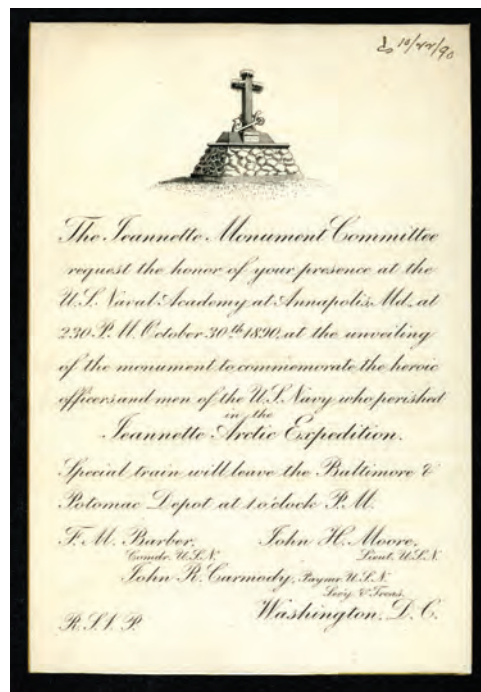 10/22/90
The Jeannette Monument Committee
request the honor of your presence at the
U.S. Naval Academy at Annapolis, Md., at
2.30 P.M. October 30th 1890, at the unveiling
of the monument to commemorate the heroic
officers and men of the U.S. Navy who perished
in the
Jeannette Arctic Expedition.
Special train will leave the Baltimore &
Potomac Depot at 1 o'clock P.M.
F. M. Barber, John H. Moore,
Comdr. U.S.N. Lieut. U.S.N.
John R. Carmody, Paymr. U.S.N.
Secy. & Treas.
Washington, D.C.
R.S.V.P.